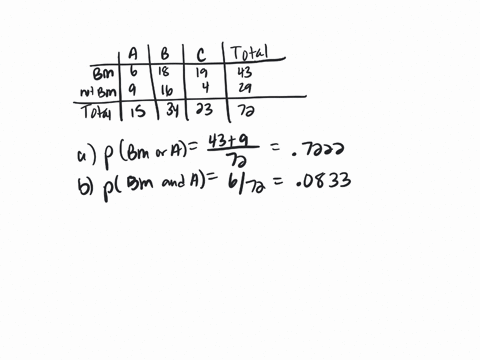 A B C Total
Bm 6 18 19 43
not Bm 9 16 4 29
Total 15 34 23 72
a) P(Bm or A) = 43+9/72 = .7222
b) P(Bm and A) = 6/72 = .0833